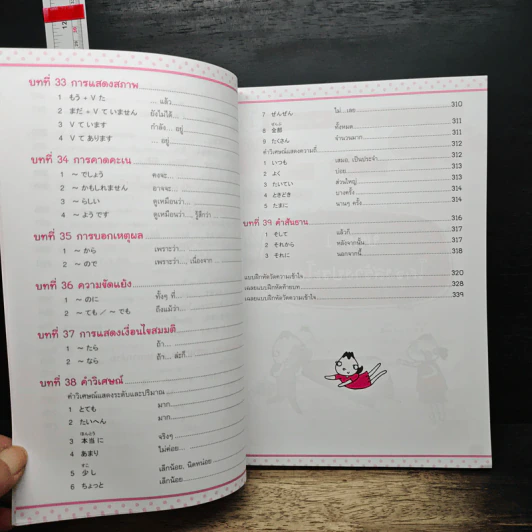 บทที่ 33 การแสดงสภาพ
1 もう + V た ... แล้ว
2 まだ + V て いません ยังไม่ได้...
3 V て います กำลัง... อยู่
4 V て あります ... อยู่
บทที่ 34 การคาดคะเน
1 ~ でしょう คงจะ...
2 ~ かもしれません อาจจะ...
3 ~ らしい ดูเหมือนว่า...
4 ~ よう です ดูเหมือนว่า... รู้สึกว่า...
บทที่ 35 การบอกเหตุผล
1 ~ から เพราะว่า...
2 ~ ので เพราะว่า... เนื่องจาก ...
บทที่ 36 ความขัดแย้ง
1 ~ のに ทั้งๆ ที่...
2 ~ ても / ~ でも ถึงแม้ว่า...
บทที่ 37 การแสดงเงื่อนไขสมมติ
1 ~ たら ถ้า...
2 ~ なら ถ้า... ล่ะก็...
บทที่ 38 คำวิเศษณ์
คำวิเศษณ์แสดงระดับและปริมาณ
1 とても มาก...
2 たいへん มาก...
3 本当に จริงๆ
4 あまり ไม่ค่อย...
5 少し เล็กน้อย, นิดหน่อย
6 ちょっと เล็กน้อย
7 ぜんぜん ไม่...เลย 310
8 全部 ทั้งหมด 311
9 たくさん จำนวนมาก 311
คำวิเศษณ์แสดงความถี่ 312
1 いつも เสมอ, เป็นประจำ 312
2 よく บ่อย 313
3 たいてい ส่วนใหญ่ 313
4 ときどき บางครั้ง 314
5 たまに นานๆ ครั้ง 314
บทที่ 39 คำสันธาน 316
1 そして แล้วก็ 317
2 それから หลังจากนั้น 317
3 それに นอกจากนี้ 318
แบบฝึกหัดวัดความเข้าใจ 320
เฉลยแบบฝึกหัดท้ายบท 328
เฉลยแบบฝึกหัดวัดความเข้าใจ 339